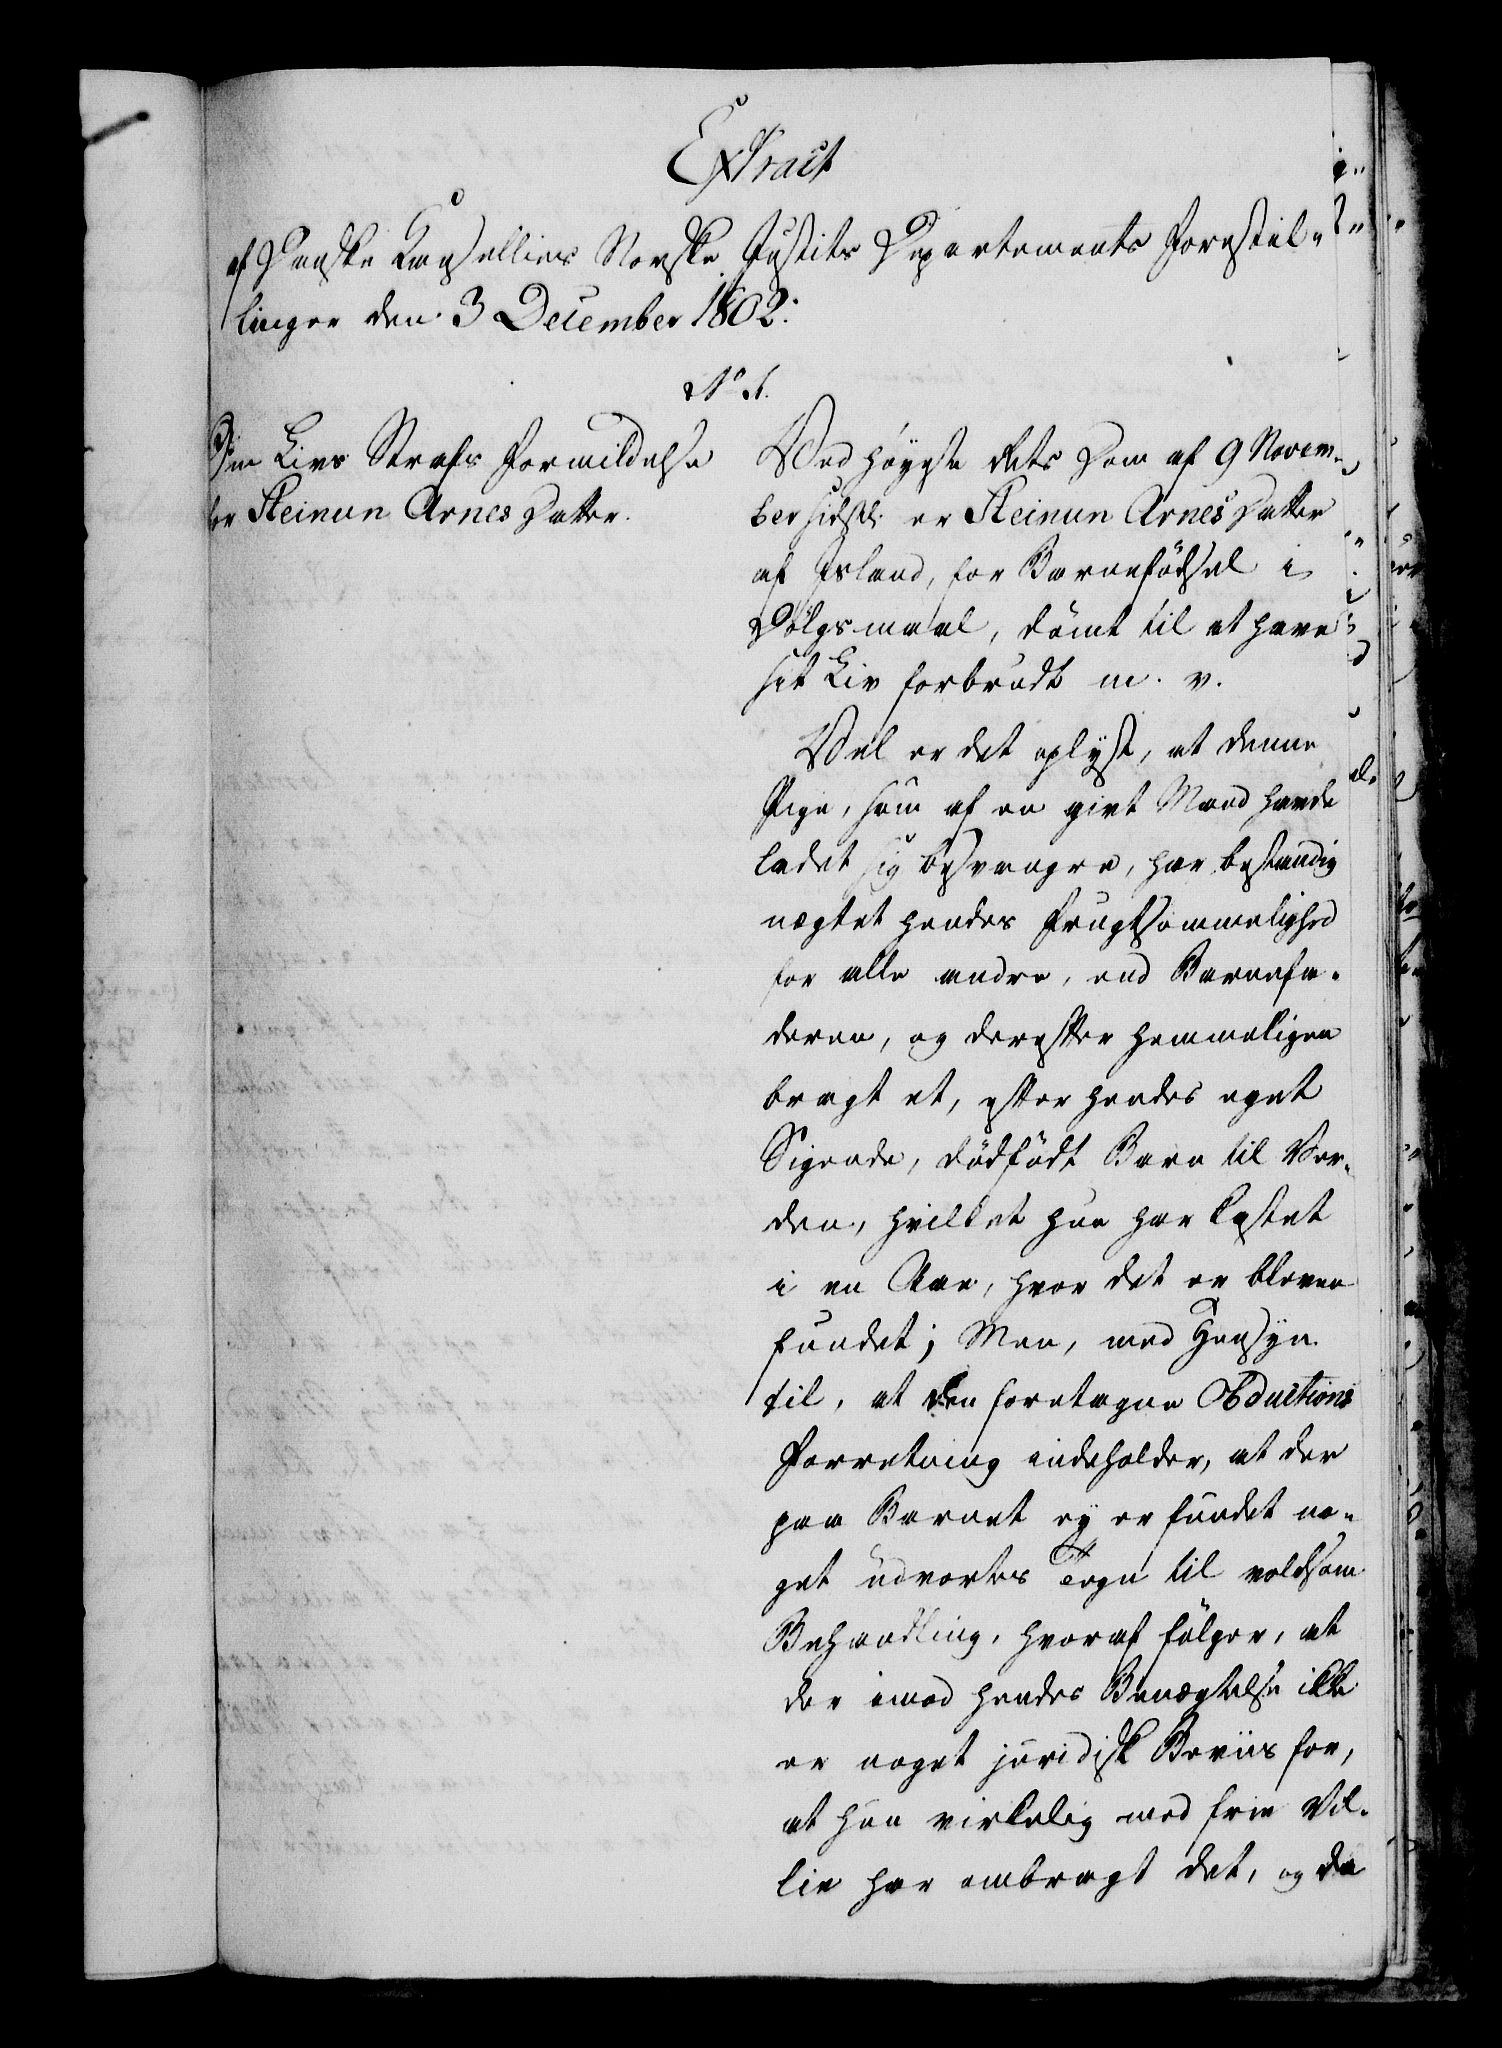 Extract
af Danske Cancelliets Norske Justits Departements Forestil-
linger den 3 December 1802.
No. 1.
Om Livs Strafs Formildelse
for Steinun Arnes Datter.
Ved høyeste Rets Dom af 9 Novem-
ber sidstl. er Steinun Arnes Datter
af Island, for Barnefödsel i
Dölgsmaal, dömt til at have
sit Liv forbrudt m. v.
Vel er det oplyst, at denne
Pige, som af en givt Mand havde
ladet sig besvangre, har bestandig
nægtet hendes Frugtsommelighed
for alle andre, end Barnefa-
deren, og derefter hemmeligen
bragt et, efter hendes eget
Sigende, dödfödt Barn til Ver-
den, hvilket hun har kastet
i en Aae, hvor det er bleven
fundet; Men, med Hensyn
til, at den foretagne Obductions
Forretning indeholder, at der
paa Barnet ey er fundet no-
get udvortes Tegn til voldsom
Behandling, hvoraf fölger, at
der imod hendes Benægtelse ikke
er noget juridisk Beviis for,
at hun virkelig med frie Vil-
lie har ombragt det, og da